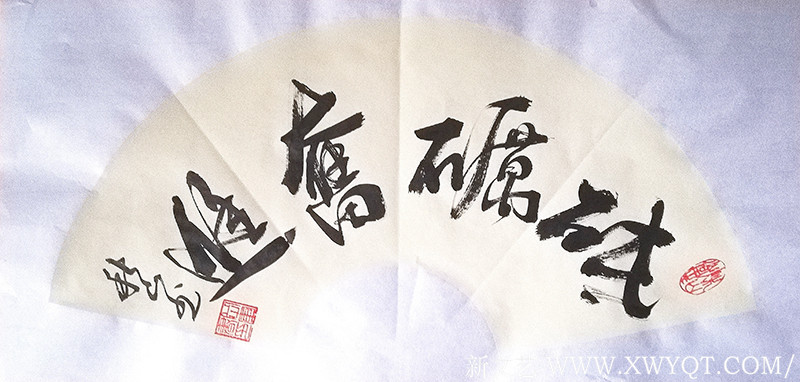 砥礪奮進
新 WWW.XWYQT.COM/